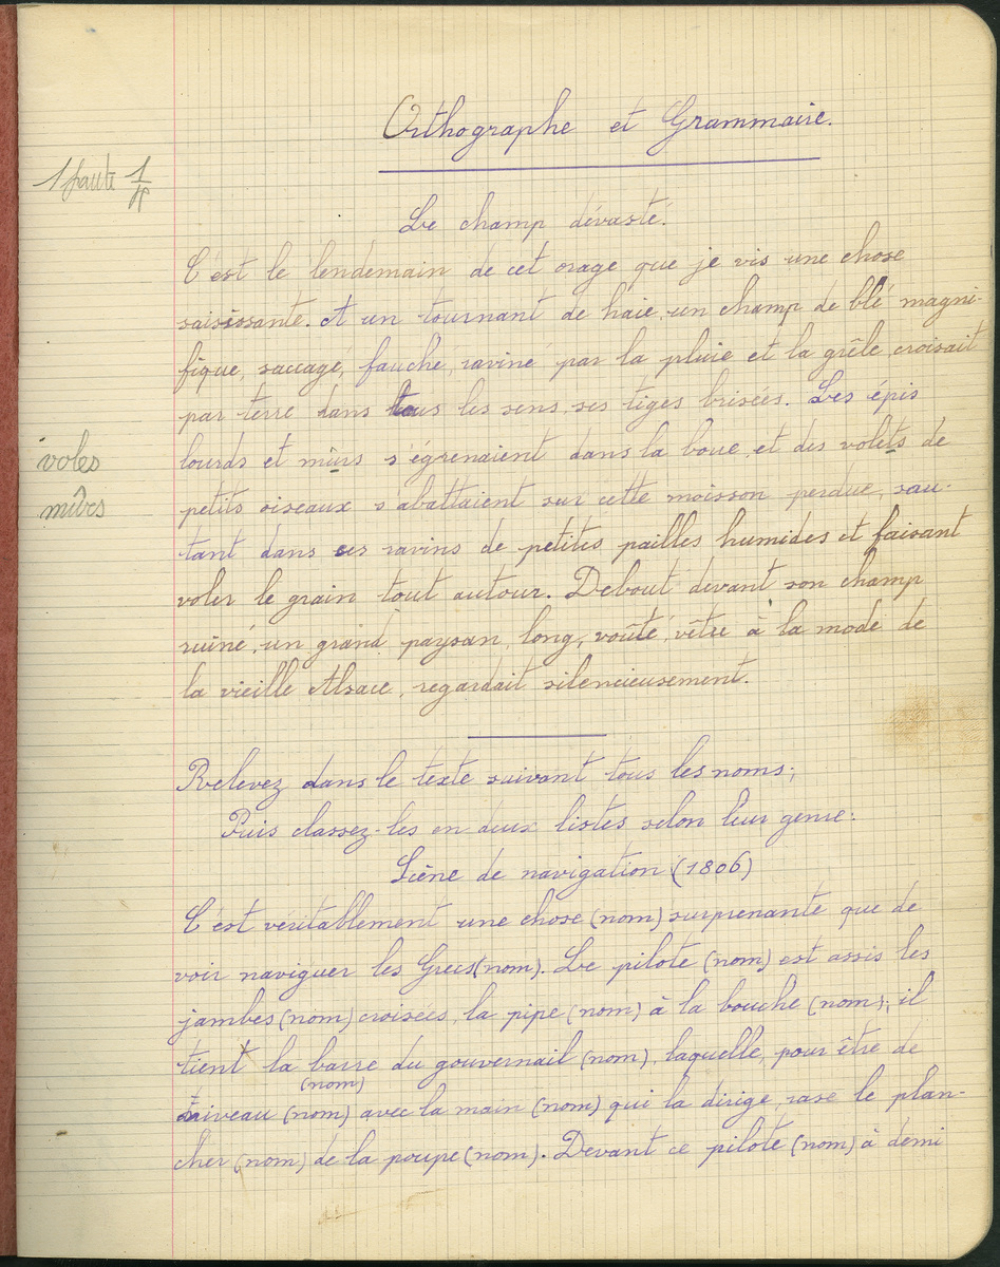 Orthographe et Grammaire.
1 faute 1/4
Le champ dévasté.
C'est le lendemain de cet orage que je vis une chose
saisissante. A un tournant de haie, un champ de blé magni-
fique, saccagé, fauché, raviné par la pluie et la grêle, croisait
par terre dans tous les sens, ses tiges brisées. Les épis
voles
lourds et mûrs s'égrenaient dans la boue, et des volets de
mûrs
petits oiseaux s'abattaient sur cette moisson perdue, sau-
tant dans ces ravins de petites pailles humides et faisant
voler le grain tout autour. Debout devant son champ
ruiné, un grand paysan, long, voûté, vêtu à la mode de
la vieille Alsace, regardait silencieusement.
Relevez dans le texte suivant tous les noms;
Puis classez-les en deux listes selon leur genre:
Scène de navigation (1806)
C'est véritablement une chose (nom) surprenante que de
voir naviguer les Grecs (nom). Le pilote (nom) est assis les
jambes (nom) croisées, la pipe (nom) à la bouche (nom); il
tient la barre du gouvernail (nom), laquelle, pour être de
(nom)
niveau (nom) avec la main (nom) qui la dirige, rase le plan-
cher (nom) de la poupe (nom). Devant ce pilote (nom) à demi